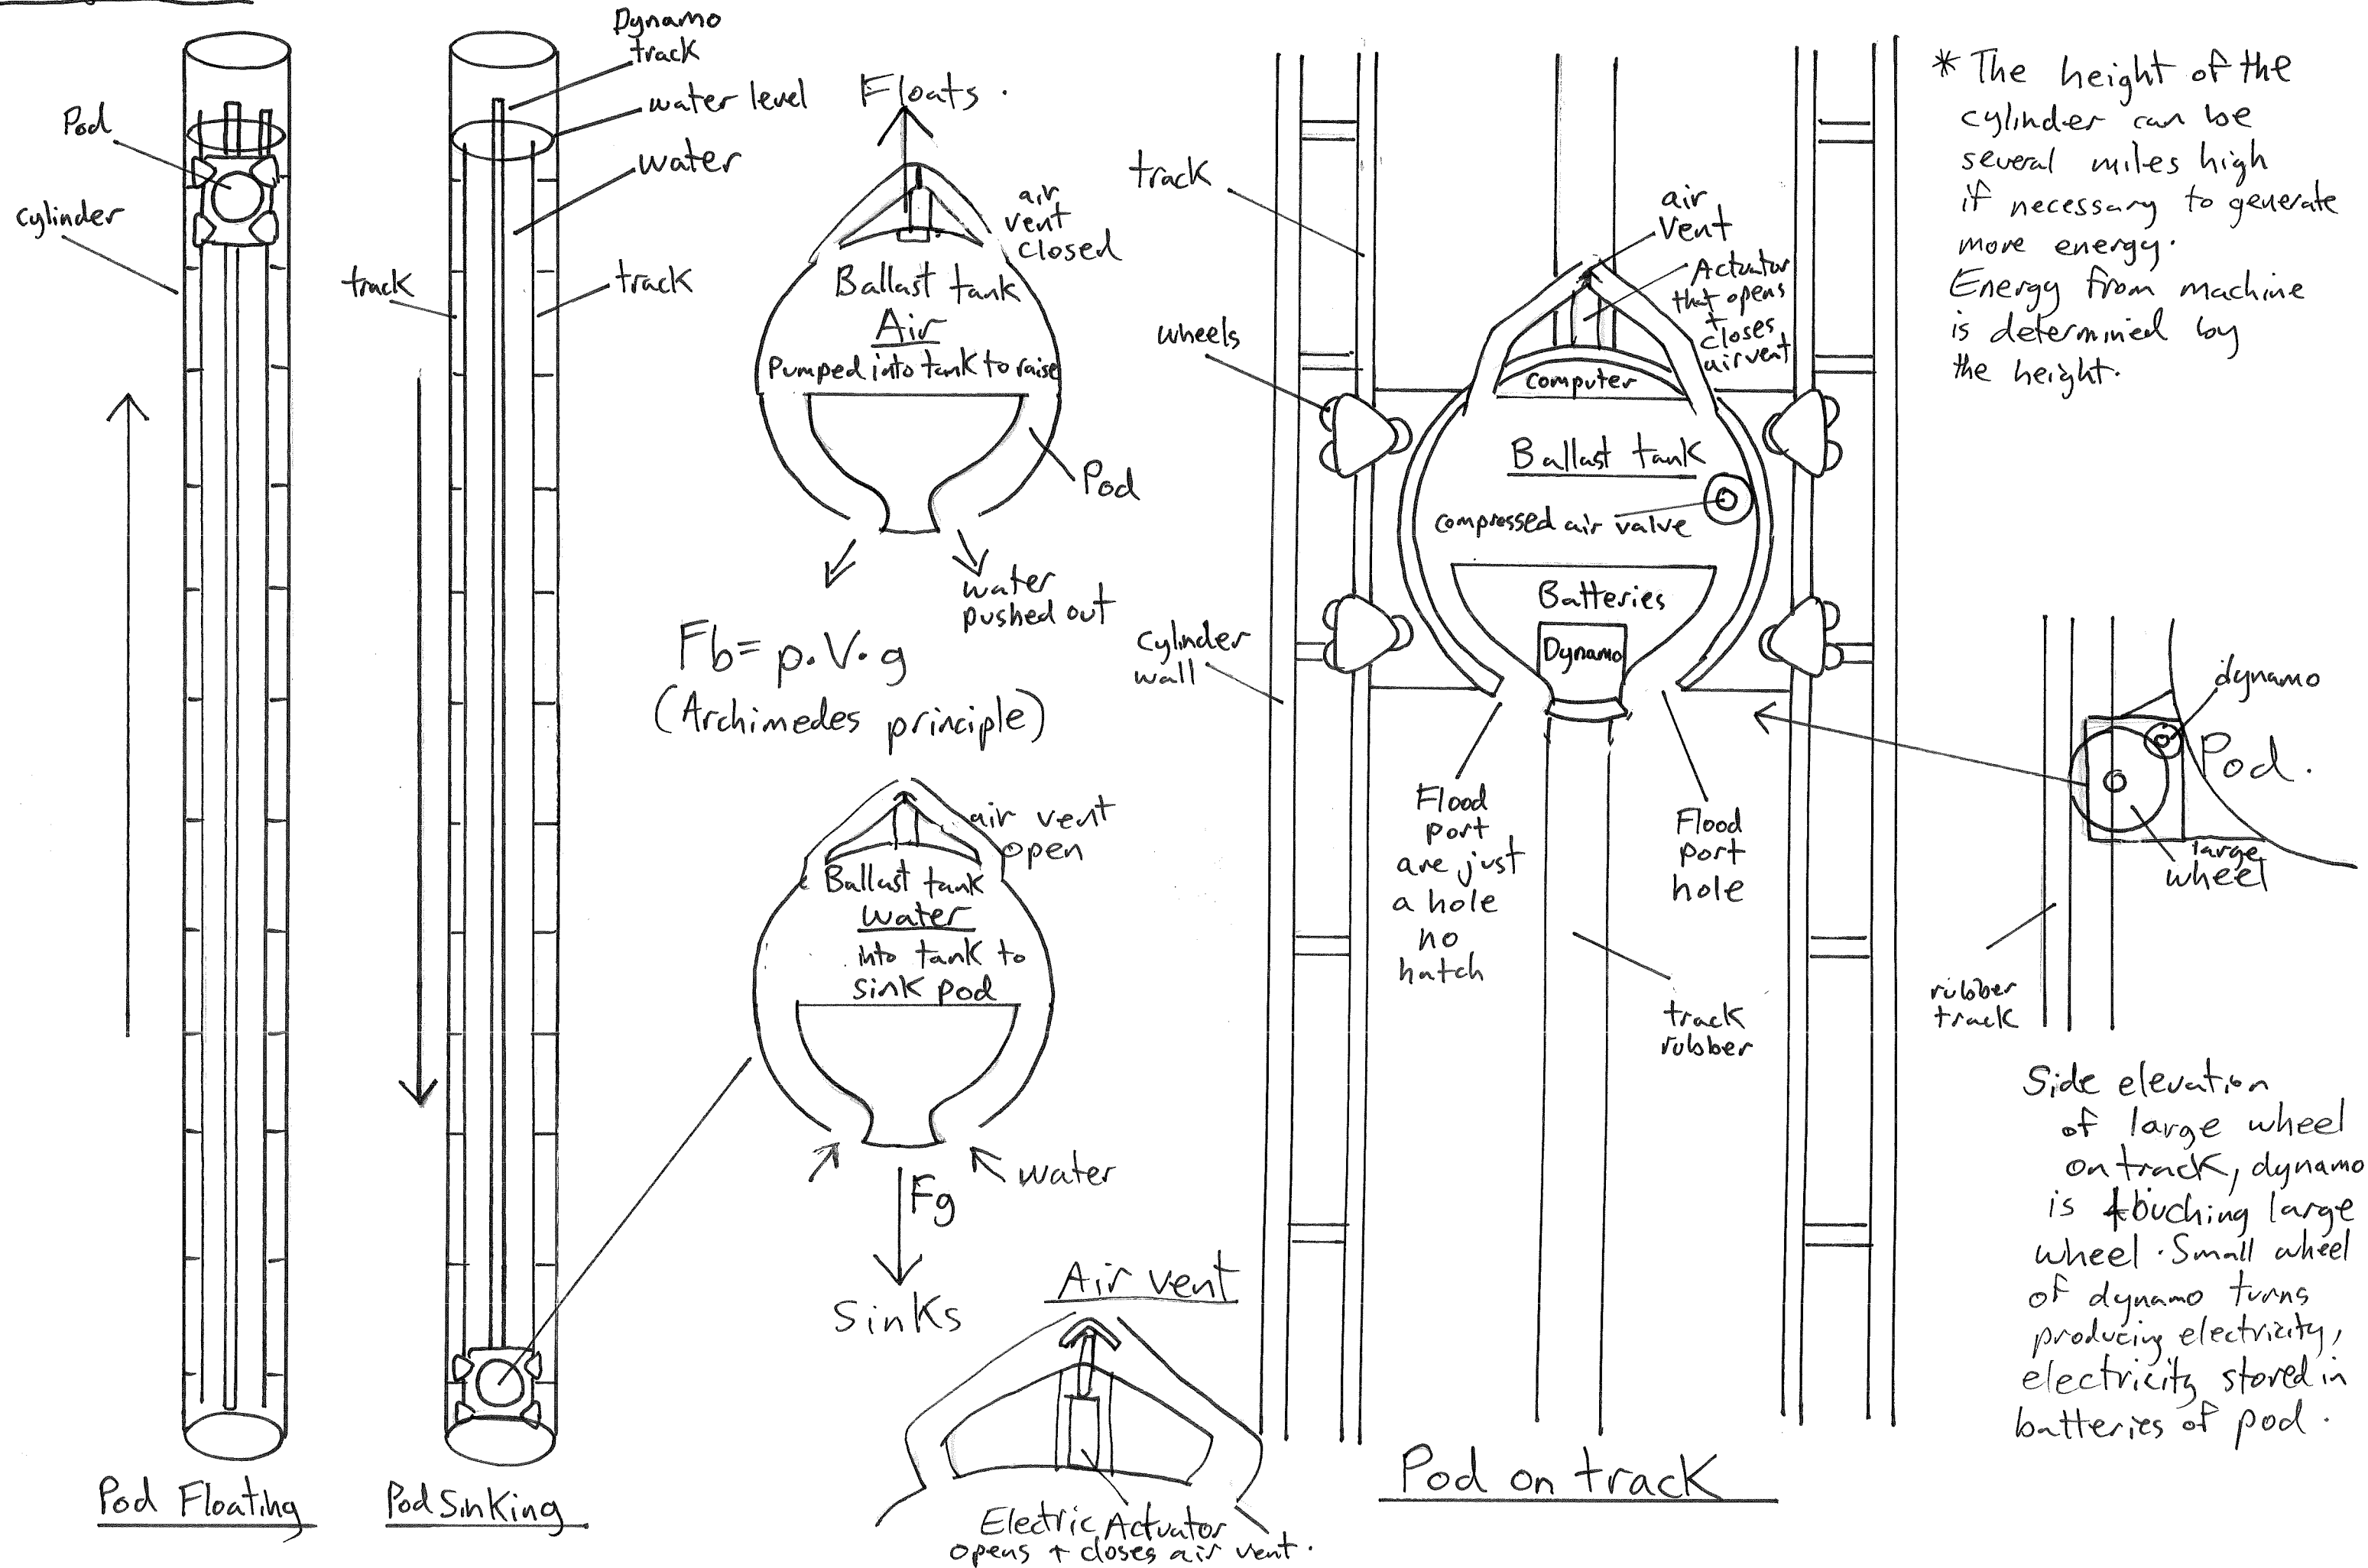 Dynamo
track
water level
water
Pod
cylinder
track
track
Pod Floating
Pod Sinking
Floats.
air
vent
closed
Ballast tank
Air
Pumped into tank to raise
Pod
water
pushed out
Fb= p.V.g
(Archimedes principle)
air vent
open
Ballast tank
water
into tank to
sink pod
water
Fg
Sinks
Air vent
Electric Actuator
opens + closes air vent.
track
wheels
cylinder
wall
air
vent
Actuator
that opens
+
closes
air vent
computer
Ballast tank
compressed air valve
Batteries
Dynamo
Flood
port
are just
a hole
no
hatch
Flood
port
hole
track
rubber
Pod on track
* The height of the
cylinder can be
several miles high
if necessary to generate
more energy.
Energy from machine
is determined by
the height.
dynamo
Pod.
large
wheel
rubber
track
Side elevation
of large wheel
on track, dynamo
is touching large
wheel. Small wheel
of dynamo turns
producing electricity,
electricity stored in
batteries of pod.